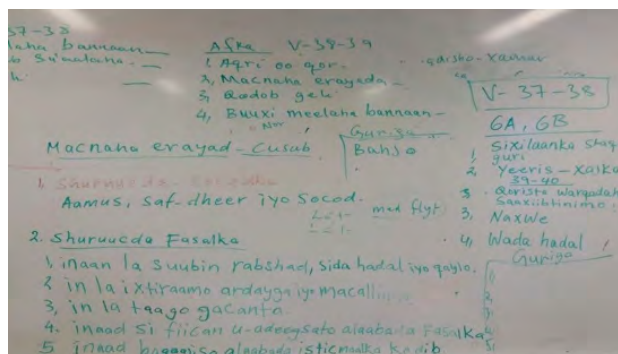 37-38
bannaan
Afka V-38-39
1. Aqri oo qor.
2, Macnaha erayada -
3, Qodob geli
4, Buuxi meelaha bannaan -
qaisho - xamar
V- 37-38
6A, 6B
1, Sixilaanka shaq
guri
2, Yeeris - Xalka
39-40
3. Qoristo warqadah
Saaxiibtinimo.
3, Naxwe
4, Wada hadal
Guriga
Guriga
Bahso
Macnaha erayad - Cusub
1. Shuruucda
Aamus, saf-dheer iyo Socod.
med flyt
2. Shuruucda Fasalka
1, inaan la suubin rabshad, sida hadal iyo qaylo.
2 in la ixtiraamo ardayga iyo macallin
3, in la taago gacanta
4. inaad si fiican u-adeegsato alaabada Fasalka
5 inaad alaabada isticmalka kadib